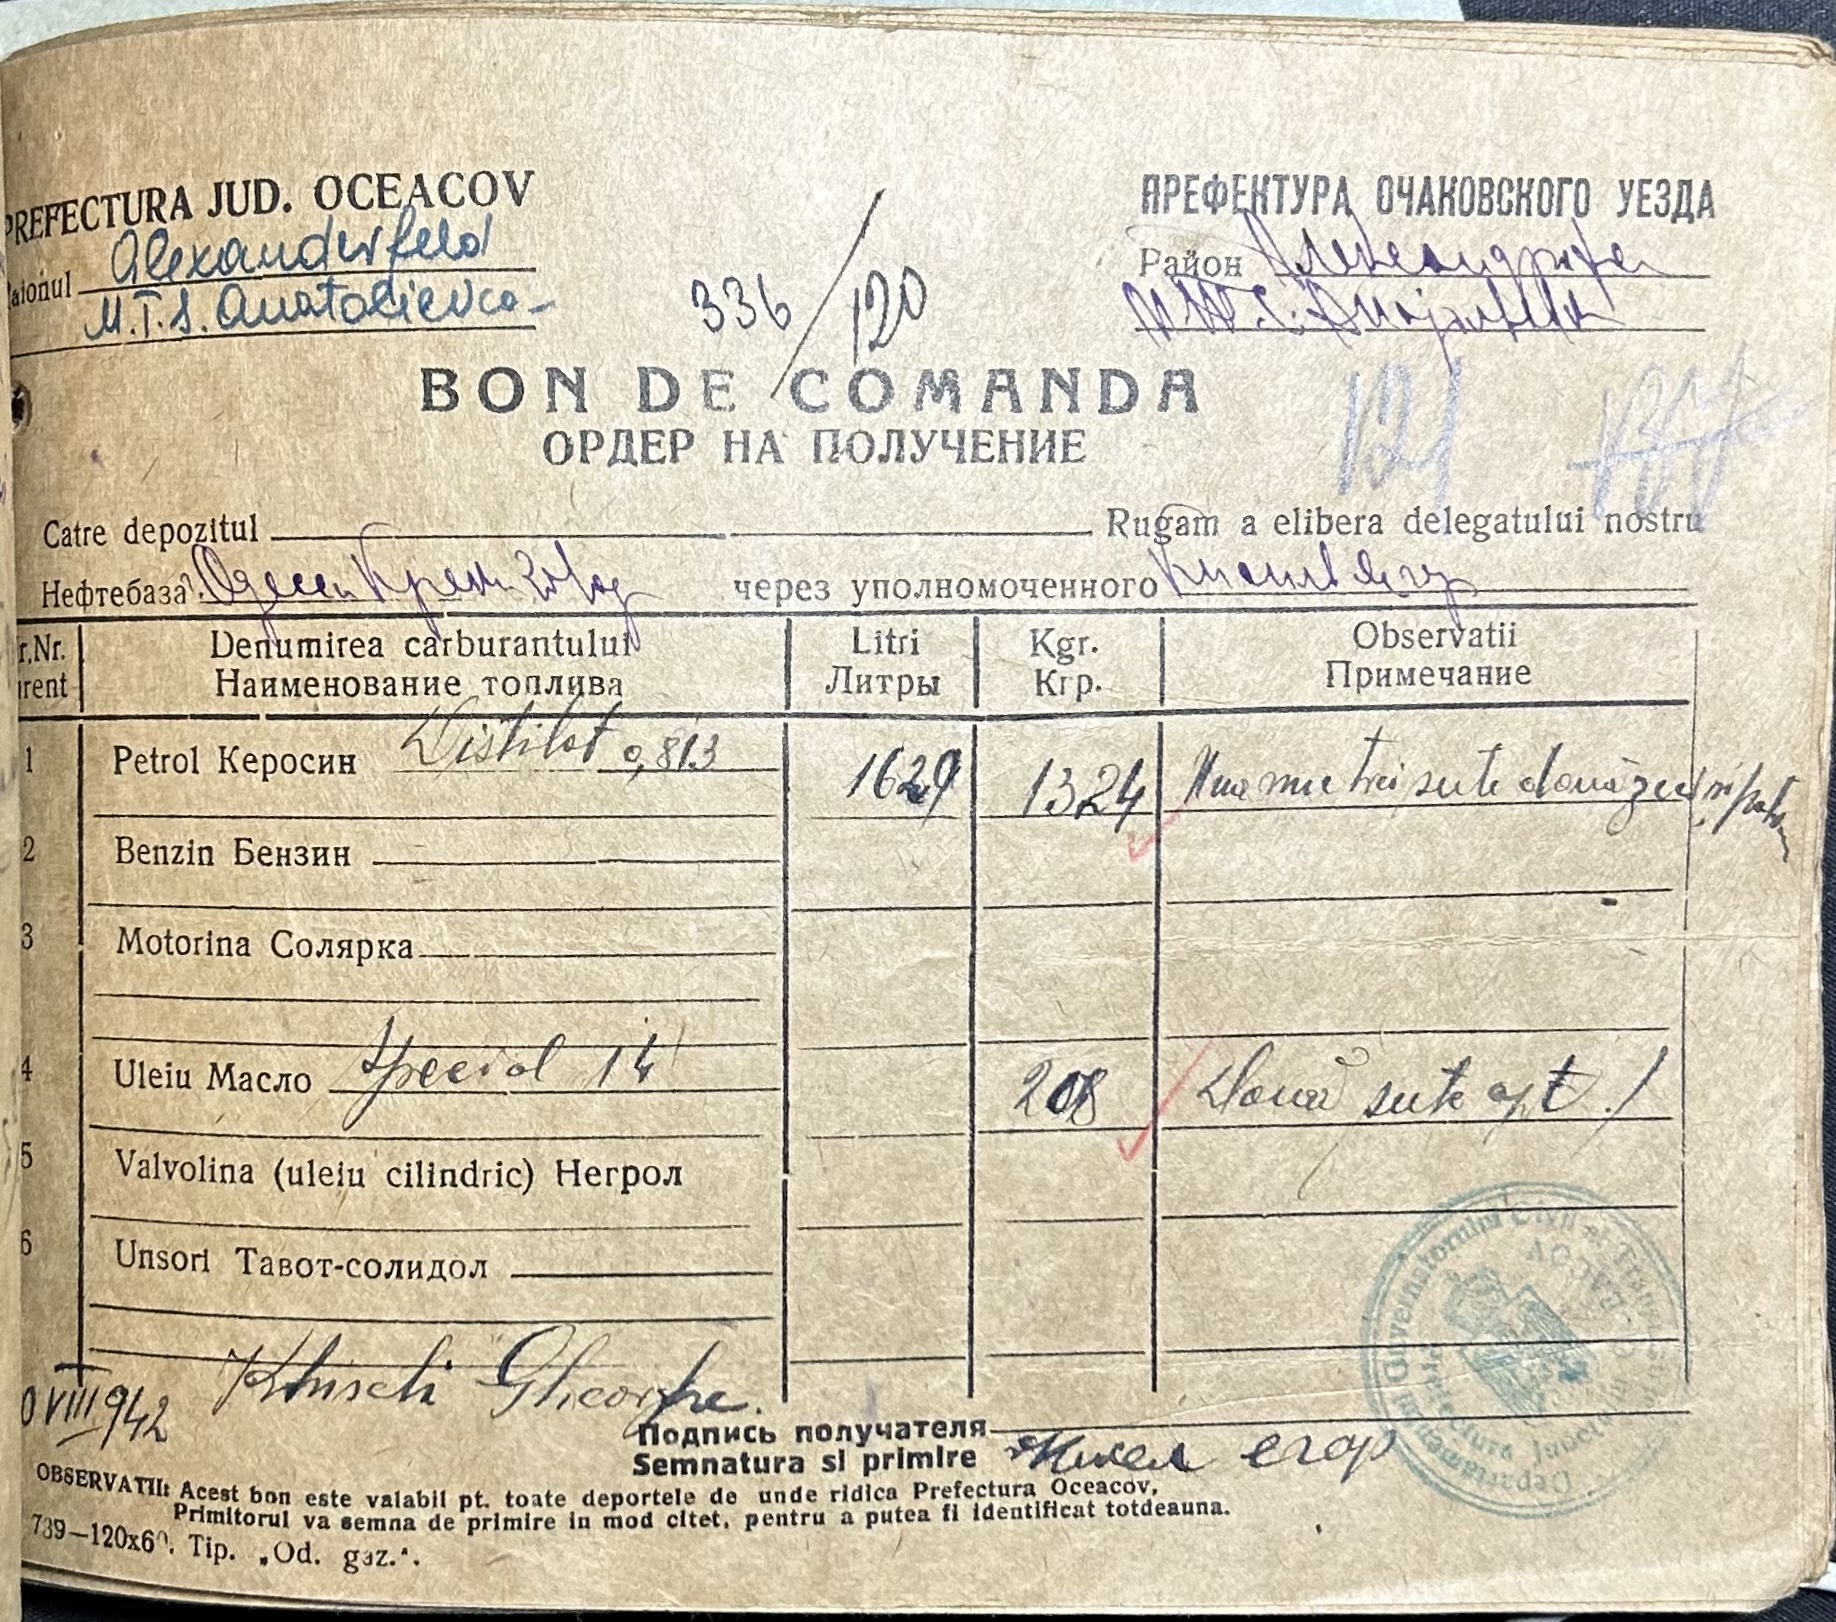 PREFECTURA JUD. OCEACOV
Raionul Alexanderfeld
M.T.S. Anatolievca
336/120
ПРЕФЕКТУРА ОЧАКОВСКОГО УЕЗДА
Район
121
BON DE COMANDA
ОРДЕР НА ПОЛУЧЕНИЕ
Catre depozitul Rugam a elibera delegatului nostru
Нефтебаза через уполномоченного
r.Nr. Denumirea carburantului Litri Kgr. Observatii
rent Наименование топлива Литры Кгр. Примечание
1 Petrol Керосин Distilat 0,813 1629 1324 Una mie trei sute douăzeci și patru
2 Benzin Бензин
3 Motorina Солярка
4 Uleiu Масло Special 14 208 Două sute opt
5 Valvolina (uleiu cilindric) Негрол
6 Unsori Тавот-солидол
0 VIII 942 Gheorghe.
Подпись получателя
Semnatura si primire егор
OBSERVATII: Acest bon este valabil pt. toate deportele de unde ridica Prefectura Oceacov.
Primitorul va semna de primire in mod citet, pentru a putea fi identificat totdeauna.
739—120x60. Tip. „Od. gaz.“.